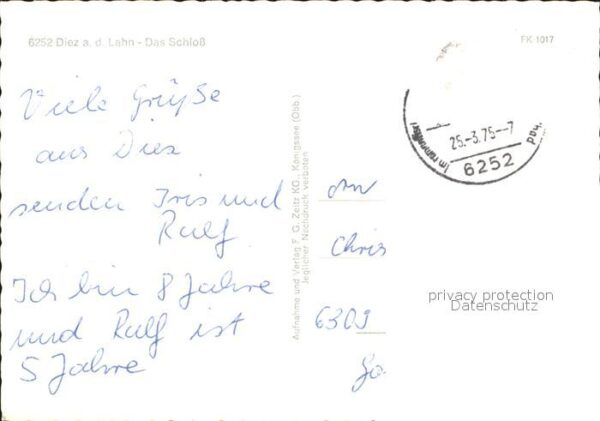 6252 Diez a. d. Lahn - Das Schloß
FK 1017
Viele Grüße
aus Diez
senden Iris und
Ralf
Ich bin 8 Jahre
und Ralf ist
5 Jahre
Aufnahme und Verlag F. G. Zeitz KG., Königssee (Obb.)
Jeglicher Nachdruck verboten
25.-3.75--7
6252
an
Chris
6309
privacy protection
Datenschutz